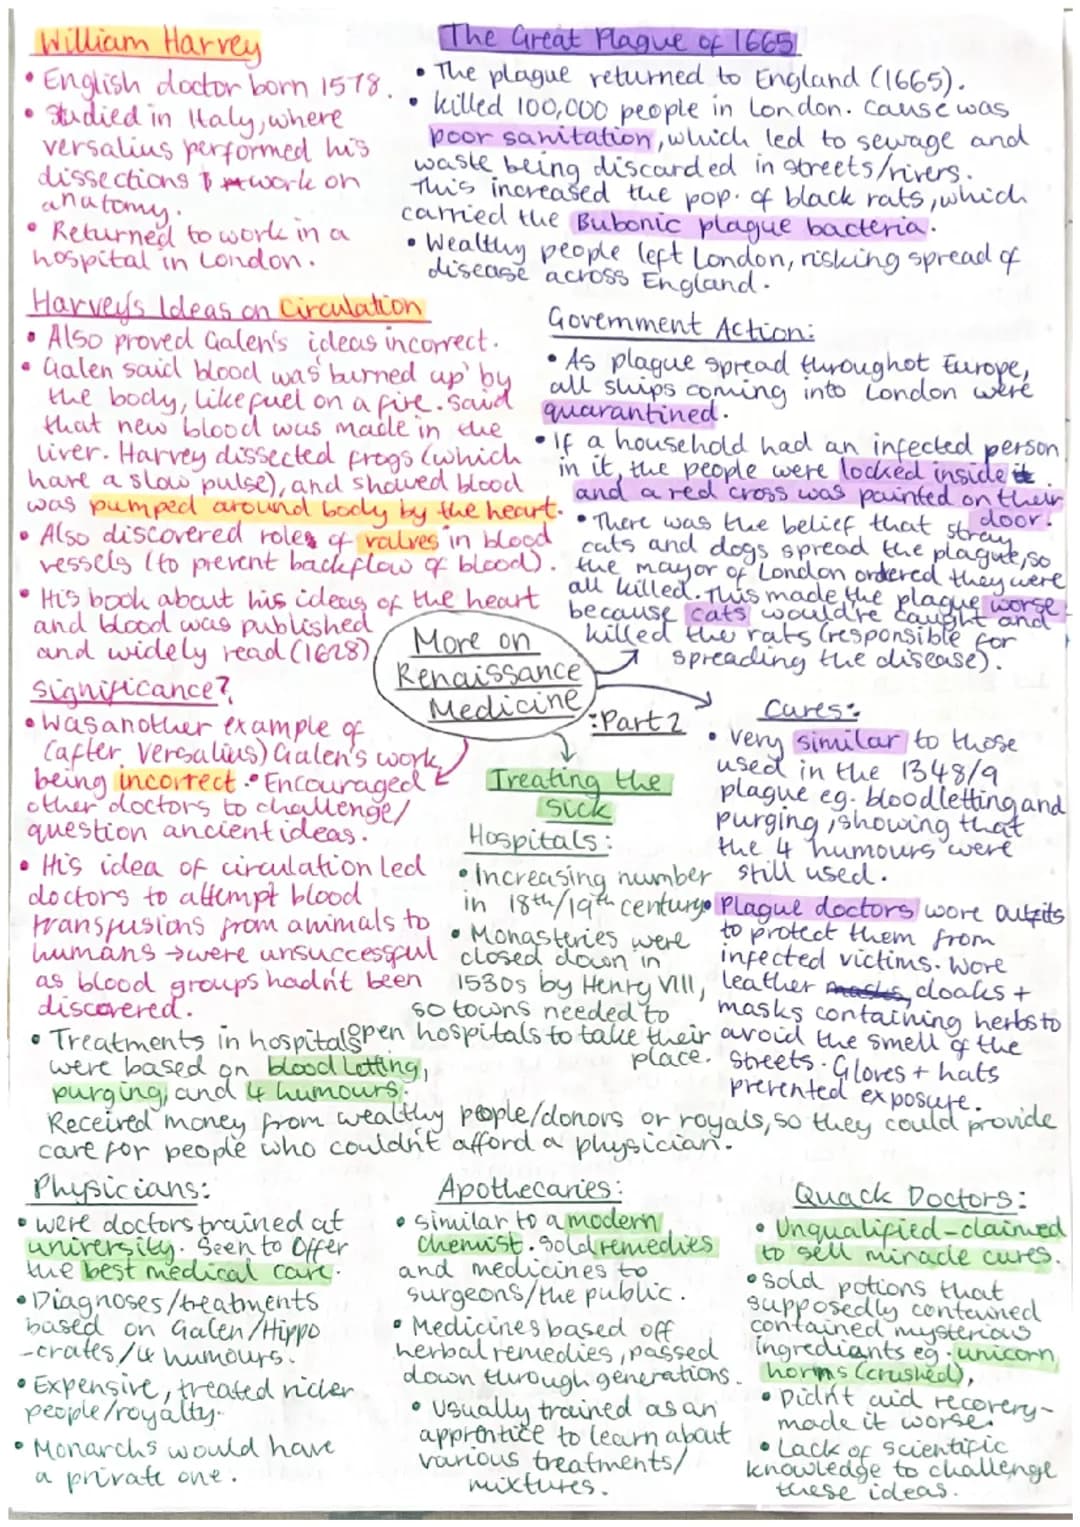 William Harvey
• English doctor born 1578.
• Studied in Italy, where
versalius performed his
dissections & work on
anatomy.
• Returned to work in a
hospital in London.
Harvey's Ideas on Circulation
• Also proved Galen's ideas incorrect.
• Galen said blood was 'burned up' by
the body, like fuel on a fire. Said
that new blood was made in the
liver. Harvey dissected frogs (which
have a slow pulse), and showed blood
was pumped around body by the heart.
• Also discovered roles of valves in blood
vessels (to prevent backflow of blood).
• His book about his ideas of the heart
and blood was published
and widely read (1628)
Significance?
• Was another example of
(after Versalius) Galen's work
being incorrect. • Encouraged
other doctors to challenge/
question ancient ideas.
• His idea of circulation led
doctors to attempt blood
transfusions from animals to
humans → were unsuccessful
as blood groups hadn't been
discovered.
The Great Plague of 1665
• The plague returned to England (1665).
• Killed 100,000 people in London. Cause was
poor sanitation, which led to sewage and
waste being discarded in streets/rivers.
This increased the pop. of black rats, which
carried the Bubonic plague bacteria.
• Wealthy people left London, risking spread of
disease across England.
Government Action:
• As plague spread throughot Europe,
all ships coming into London were
quarantined.
• If a household had an infected person
in it, the people were locked inside it
and a red cross was painted on their
door.
• There was the belief that stray
cats and dogs spread the plague, so
the mayor of London ordered they were
all killed. This made the plague worse
because cats would're caught and
killed the rats (responsible for
spreading the disease).
More on
Renaissance
Medicine
: Part 2
Cures:
• Very similar to those
used in the 1348/9
plague eg. bloodletting and
purging, showing that
the 4 humours were
still used.
• Plague doctors wore outfits
to protect them from
infected victims. Wore
leather masks, cloaks +
masks containing herbs to
avoid the smell of the
streets. Gloves + hats
prevented exposure.
Treating the
sick
Hospitals:
• Increasing number
in 18th/19th century
• Monasteries were
closed down in
1530s by Henry VIII,
so towns needed to
open hospitals to take their
place.
• Treatments in hospitals
were based on blood letting,
purging, and 4 humours.
Received money from wealthy people/donors or royals, so they could provide
care for people who couldn't afford a physician.
Physicians:
• Were doctors trained at
university. Seen to Offer
the best medical care.
• Diagnoses/treatments
based on Galen/Hippo
-crates/4 humours.
• Expensive, treated richer
people/royalty.
• Monarchs would have
a private one.
Apothecaries:
• Similar to a modern
chemist. Sold remedies
and medicines to
surgeons/the public.
• Medicines based off
herbal remedies, passed
down through generations.
• Usually trained as an
apprentice to learn about
various treatments/
mixtures.
Quack Doctors:
• Unqualified - claimed
to sell miracle cures.
• Sold potions that
supposedly contained
contained mysterious
ingredients eg. unicorn
horns (crushed),
• Didn't aid recovery -
made it worse.
• Lack of scientific
knowledge to challenge
these ideas.